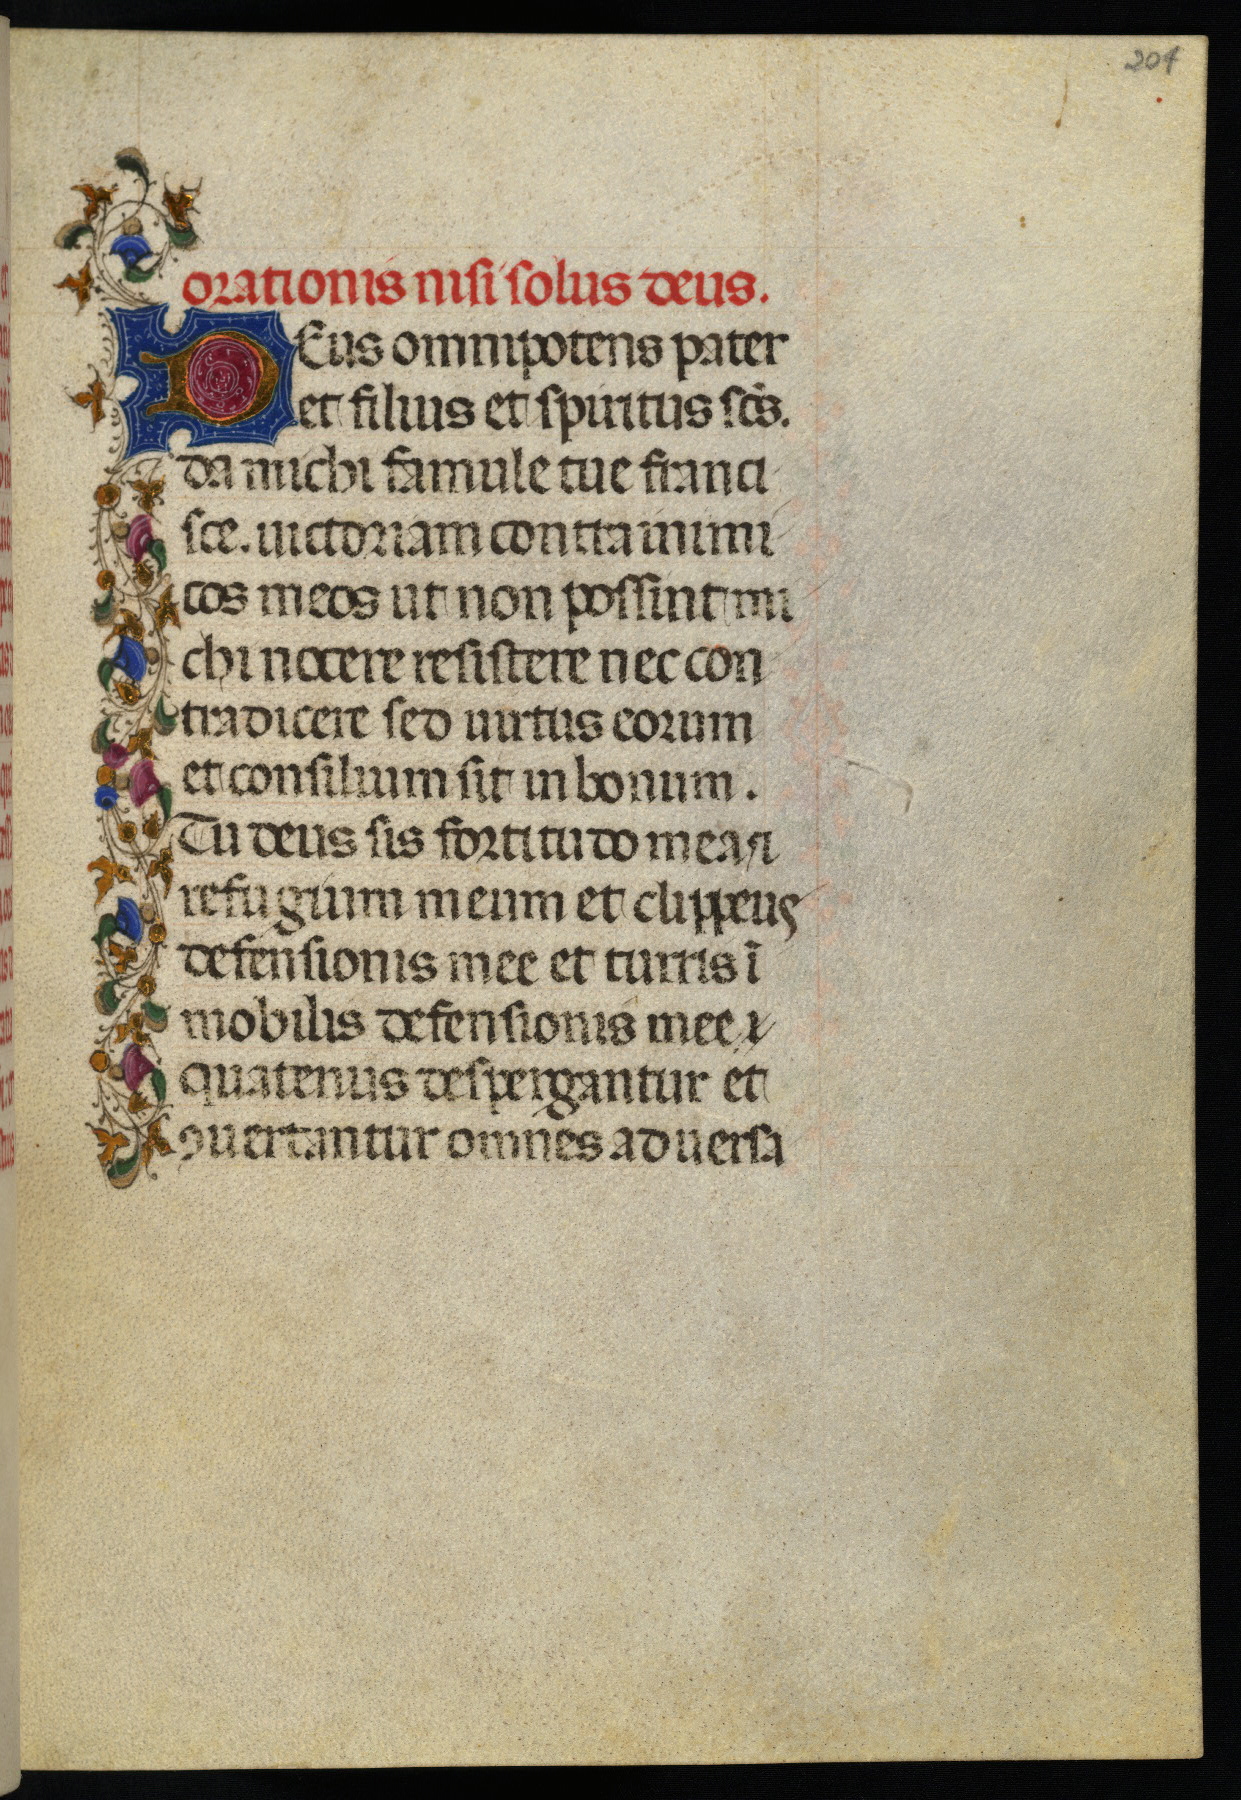 204
orationis nisi solus deus.
DEus omnipotens pater
et filius et spiritus sc̄s.
da michi famule tue franci
sce. uictoriam contra inimi
cos meos ut non possint mi
chi nocere resistere nec con
tradicere sed uirtus eorum
et consilium sit in bonum.
Tu deus sis fortitudo mea
refugium meum et clippeus
defensionis mee et turris ī
mobilis defensionis mee
quatenus despergantur et
ꝯuertantur omnes aduersa